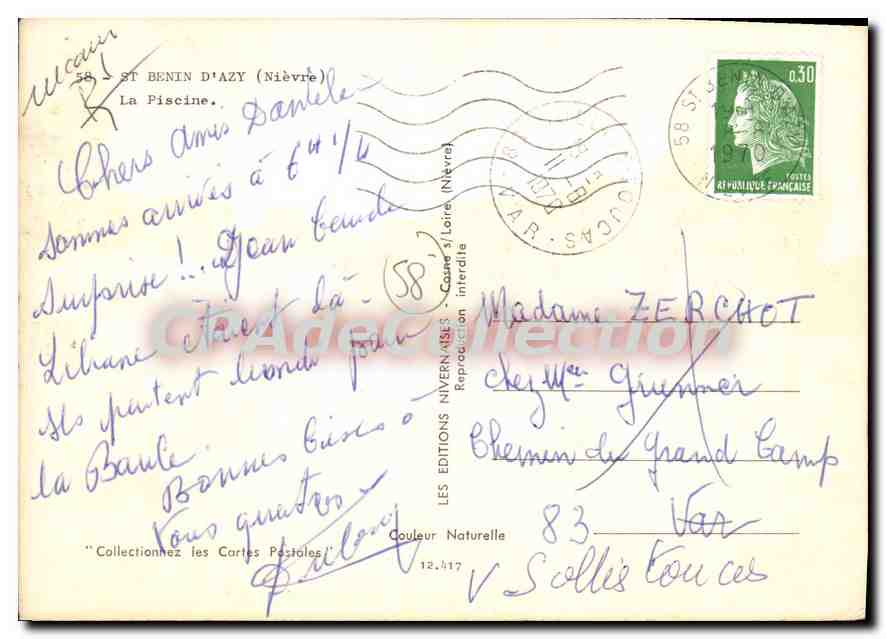 58 - ST BENIN D'AZY (Nièvre)
La Piscine.
Chers Amis Danièle
Sommes arrivés à 6H 1/4
Surprise!.. Jean Claude
Liliane étaient là -
Ils partent lundi pour
la Baule.
Bonnes bises à
Vous quatres
"Collectionnez les Cartes Postales"
Couleur Naturelle
12.417
(58)
LES EDITIONS NIVERNAISES - Cosne s/Loire (Nièvre)
Reproduction interdite
CPAdeCollection
58 ST BENIN D'AZY
1970
0.30
POSTES
REPUBLIQUE FRANÇAISE
VAR
Madame ZERCHOT
chez Mr Grunner
Chemin du Grand Camp
83 Var
V Solliès Toucas